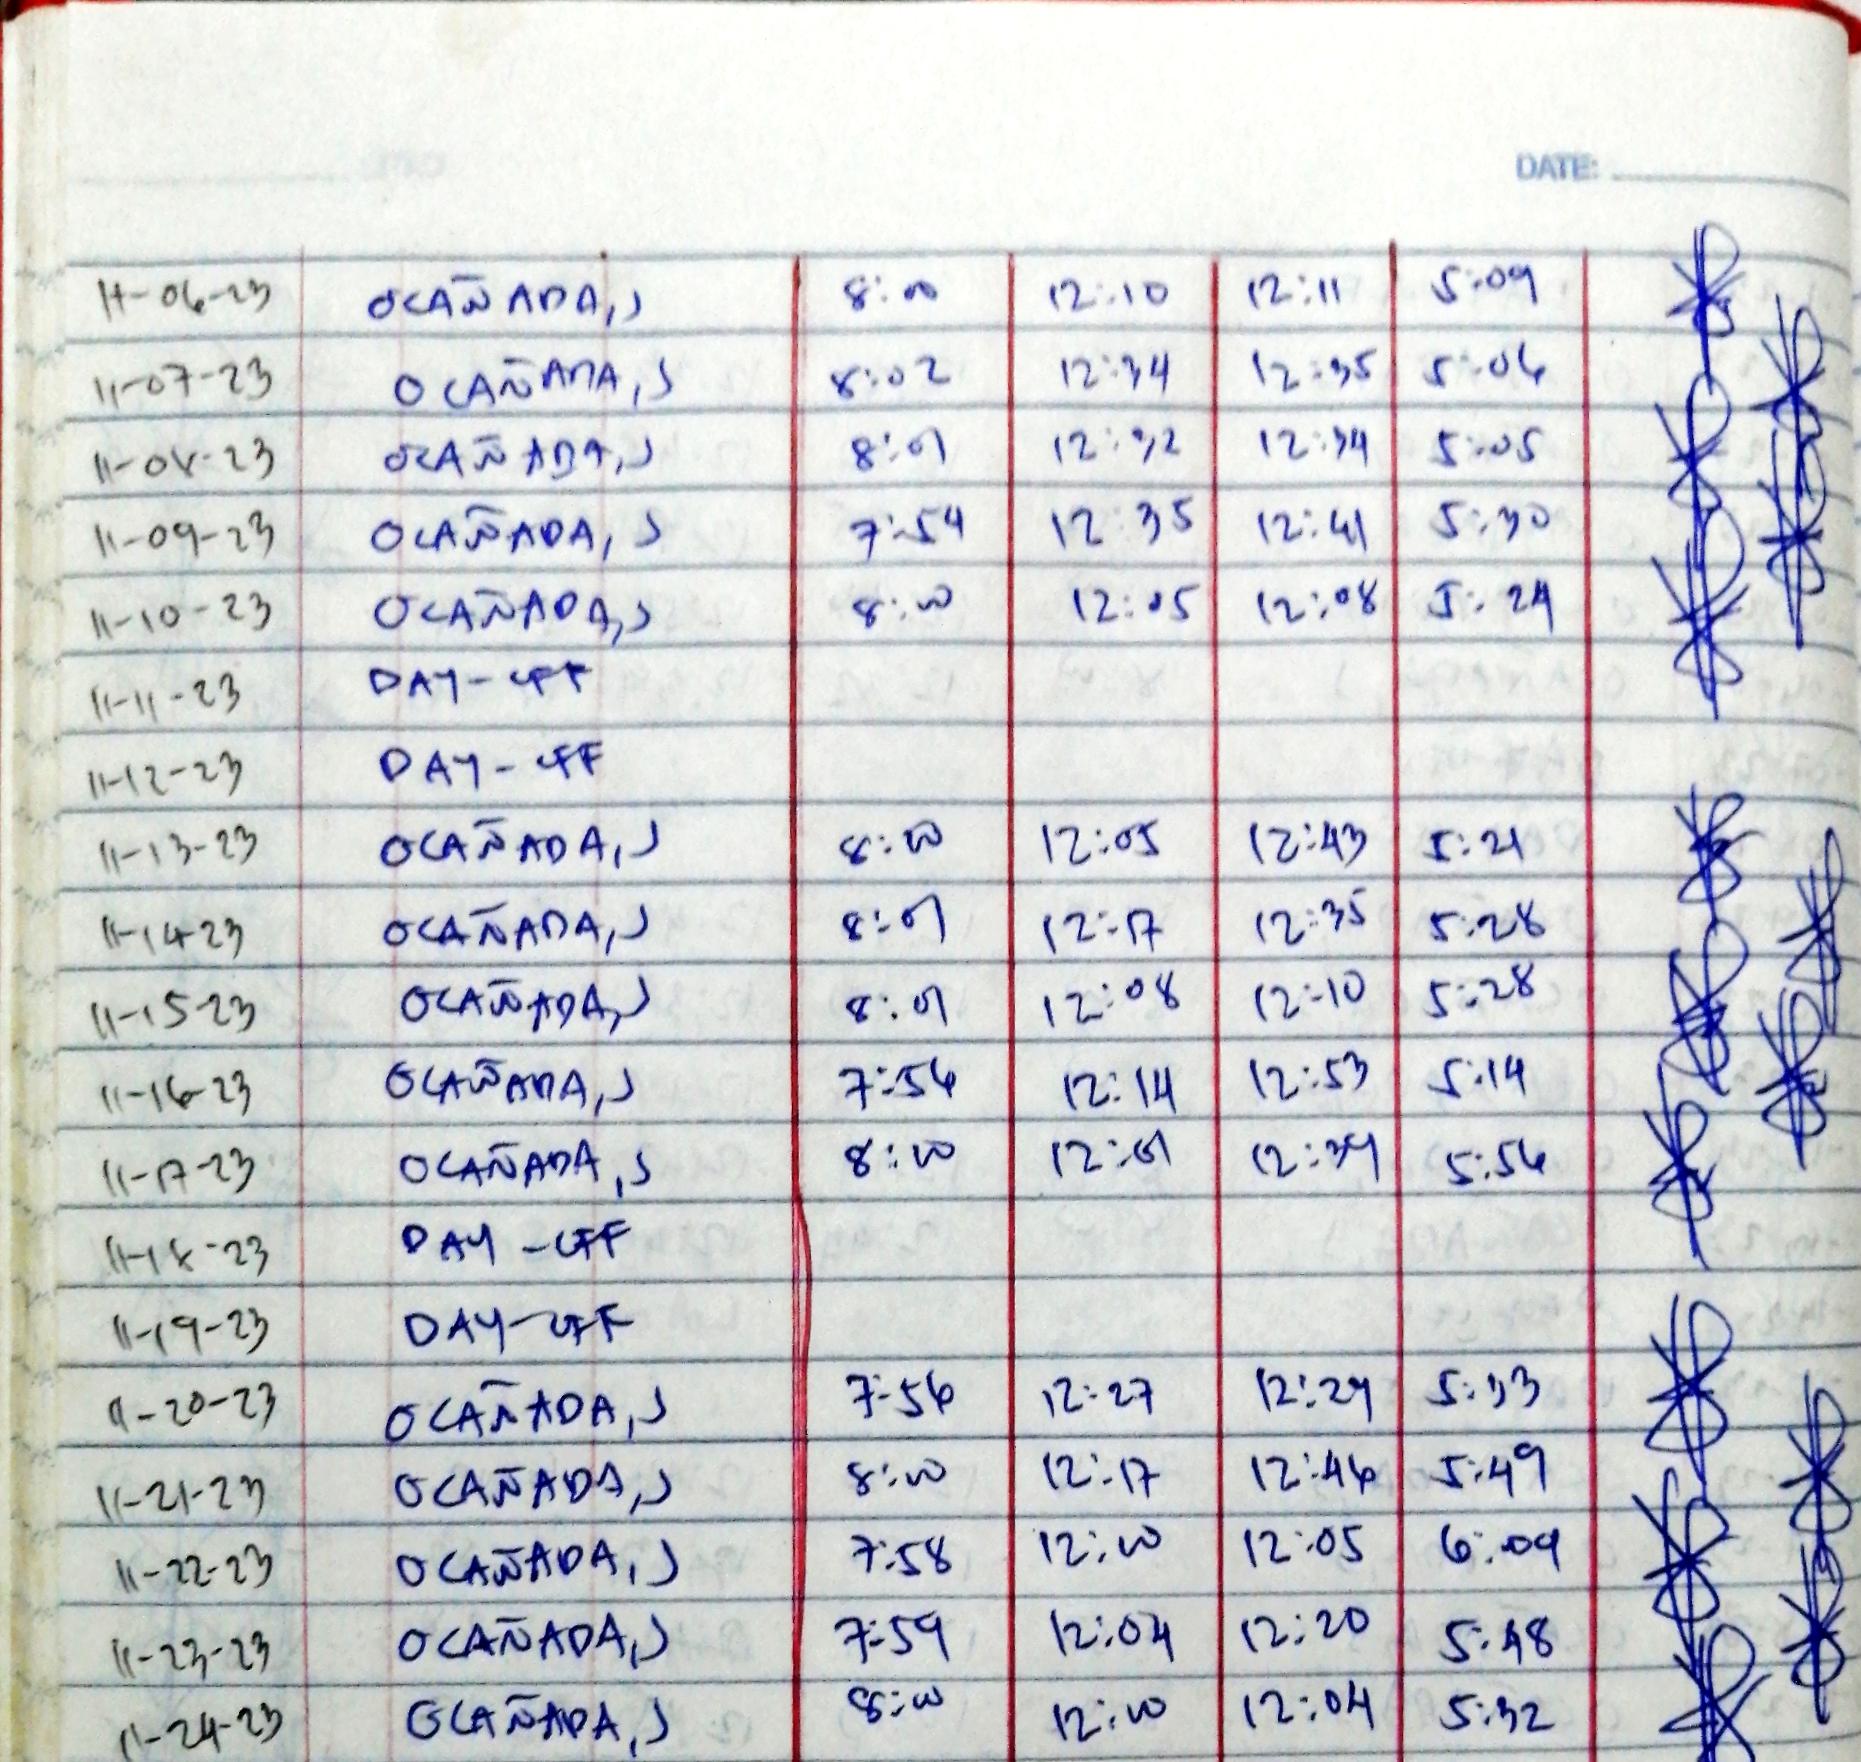 DATE:
11-06-23 OCAÑADA, J 8:00 12:10 12:11 5:09
11-07-23 OCAÑADA, J 8:02 12:34 12:35 5:06
11-08-23 OCAÑADA, J 8:01 12:32 12:34 5:05
11-09-23 OCAÑADA, J 7:54 12:35 12:41 5:30
11-10-23 OCAÑADA, J 8:00 12:05 12:08 5:24
11-11-23 DAY-OFF
11-12-23 DAY-OFF
11-13-23 OCAÑADA, J 8:00 12:05 12:43 5:21
11-14-23 OCAÑADA, J 8:01 12:17 12:35 5:28
11-15-23 OCAÑADA, J 8:01 12:08 12:10 5:28
11-16-23 OCAÑADA, J 7:56 12:14 12:53 5:14
11-17-23 OCAÑADA, J 8:00 12:01 12:39 5:56
11-18-23 DAY-OFF
11-19-23 DAY-OFF
11-20-23 OCAÑADA, J 7:56 12:27 12:29 5:33
11-21-23 OCAÑADA, J 8:00 12:17 12:46 5:49
11-22-23 OCAÑADA, J 7:58 12:00 12:05 6:09
11-23-23 OCAÑADA, J 7:59 12:04 12:20 5:48
11-24-23 OCAÑADA, J 8:00 12:00 12:04 5:32